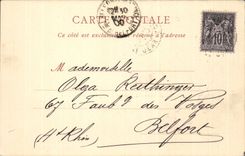 CARTE POSTALE
Ce côté est exclusivement réservé à l'adresse
Mademoiselle
Olga Reithinger
67 Faubg des Vosges
Belfort
(Ht Rhin)